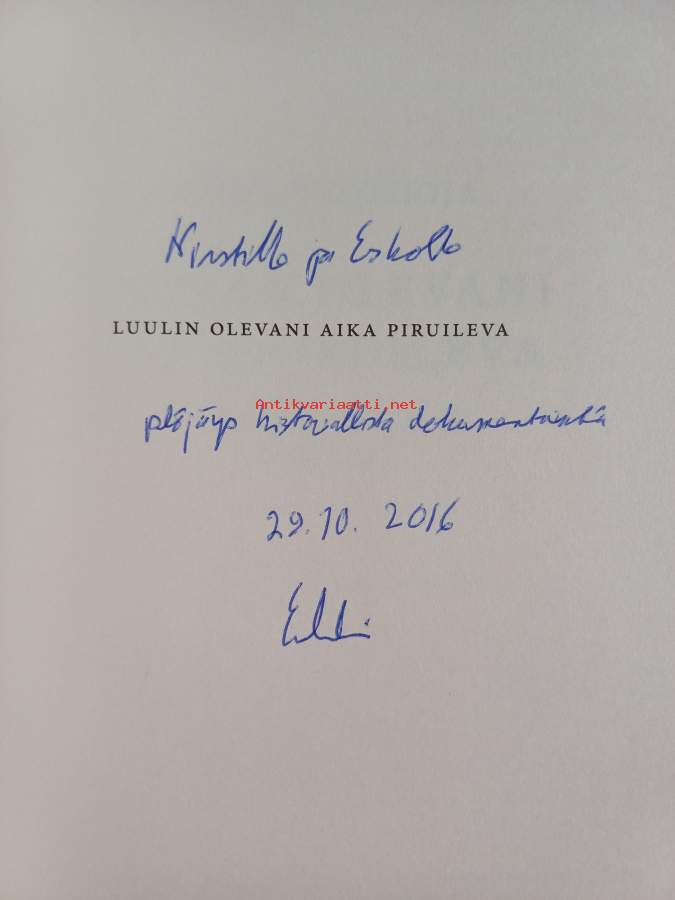 Kirstille ja Eskolle
LUULIN OLEVANI AIKA PIRUILEVA
Antikvariaatti.net
historiallista dokumentointia
29.10. 2016
Erkki